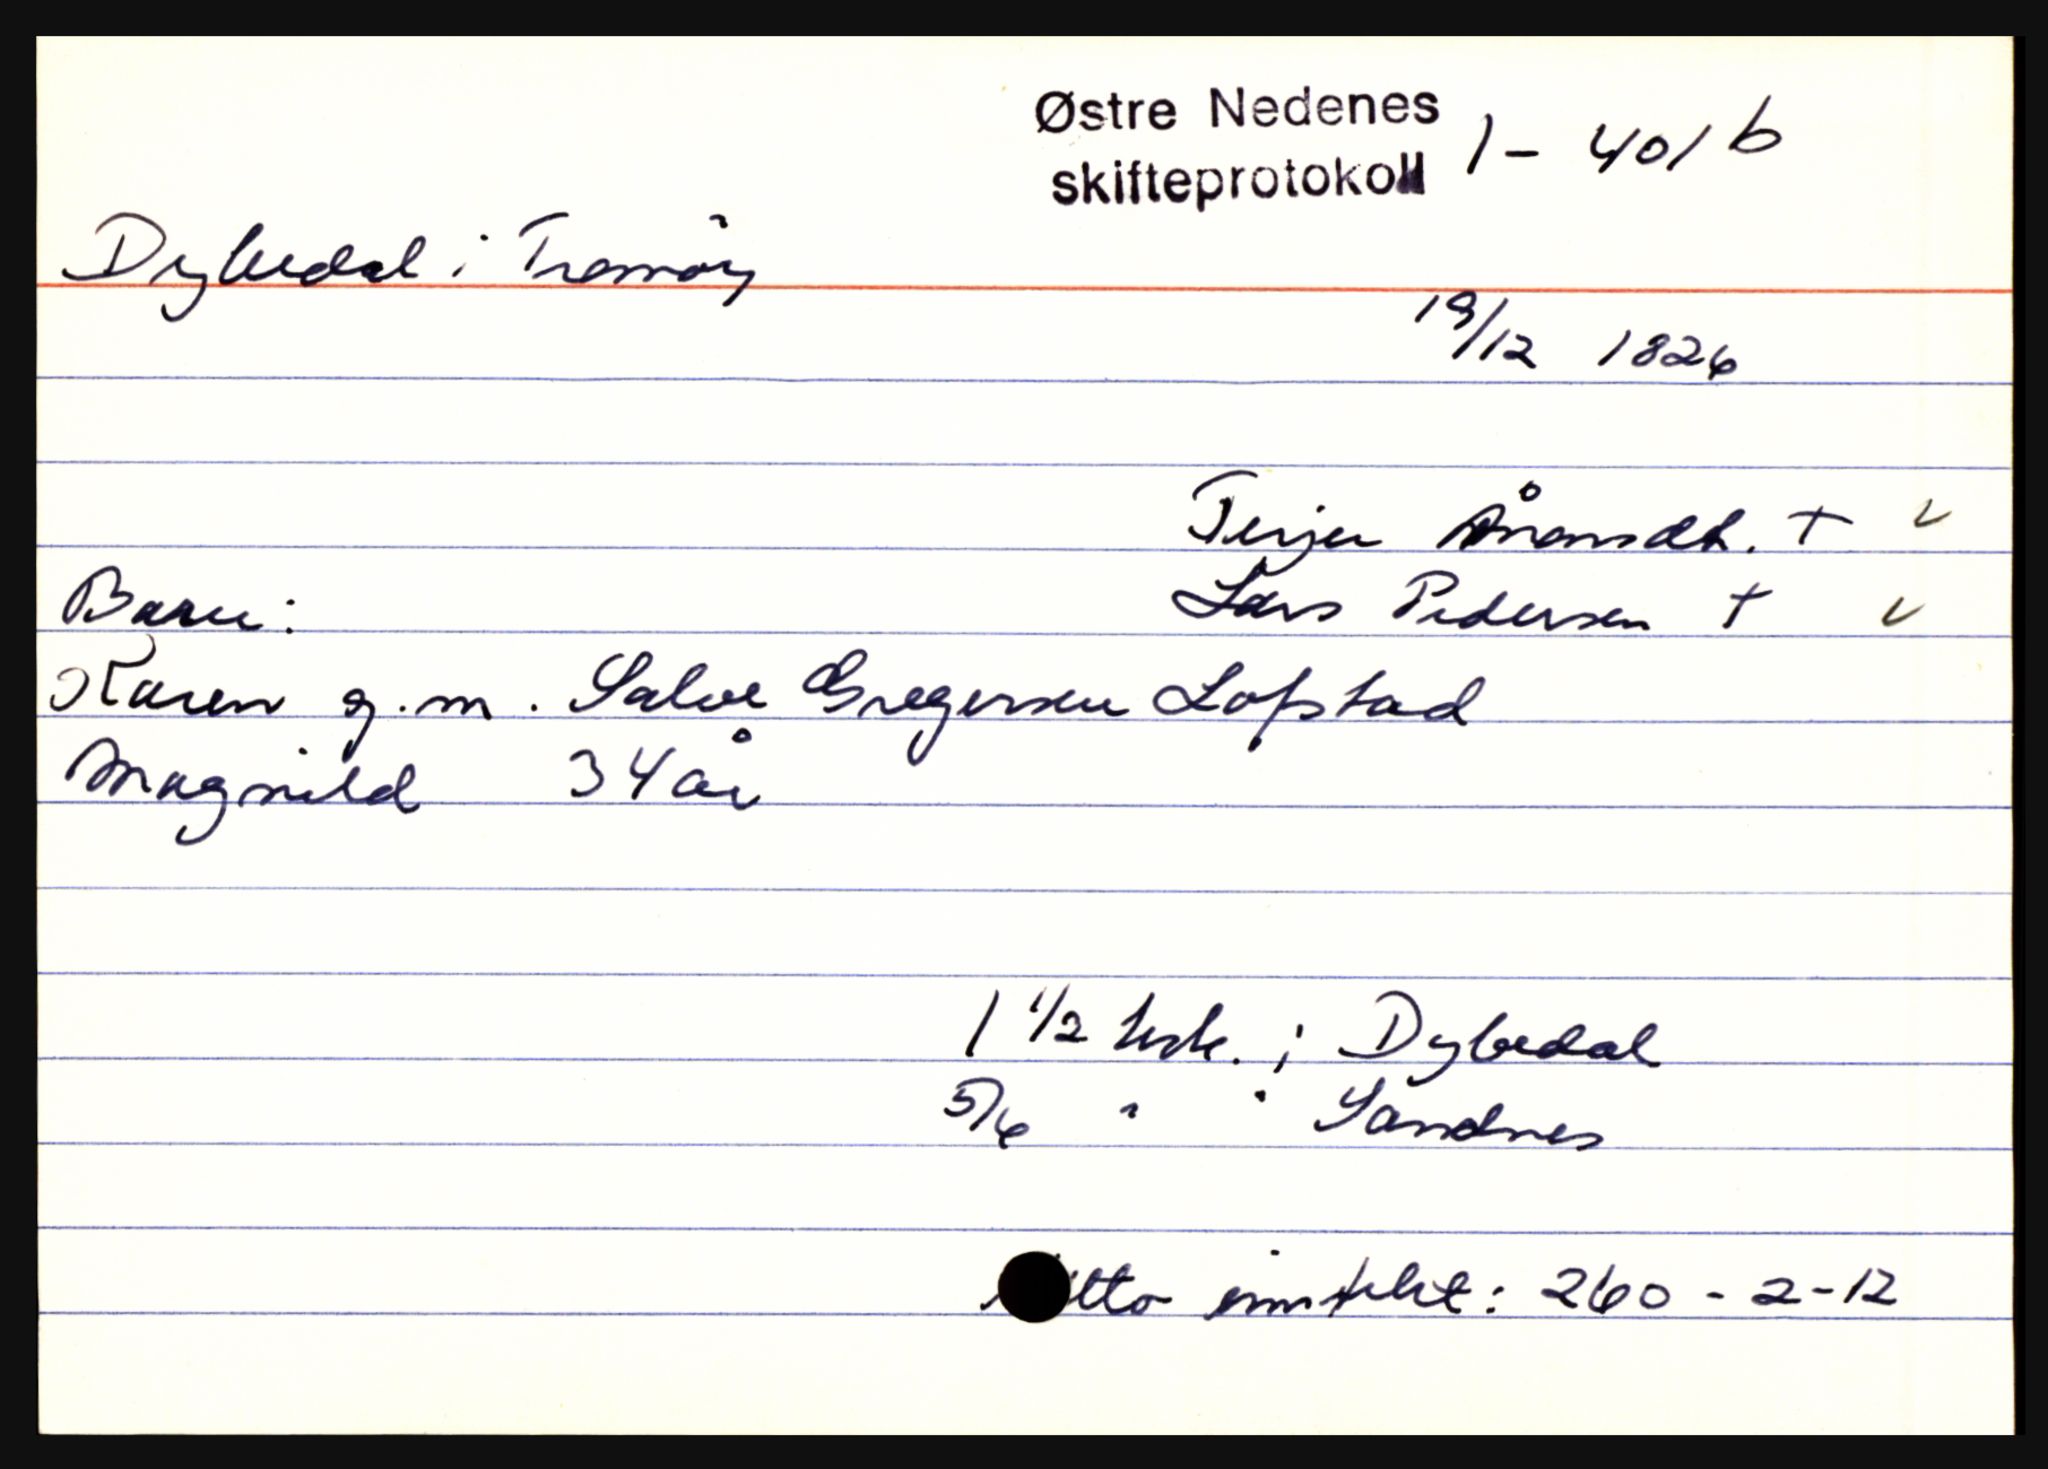 Østre Nedenes
skifteprotokoll 1 - 401 b
Dybedal i Tromøy
19/12 1826
Terjer Ånonsdt. + v
Barn: Lars Pedersen + v
Karen g.m. Salve Gregersen Lofstad
Magnild 34 år
1 1/2 hsk. i Dybedal
5/6 " " Sandnes
inntekt: 260 - 2 - 12